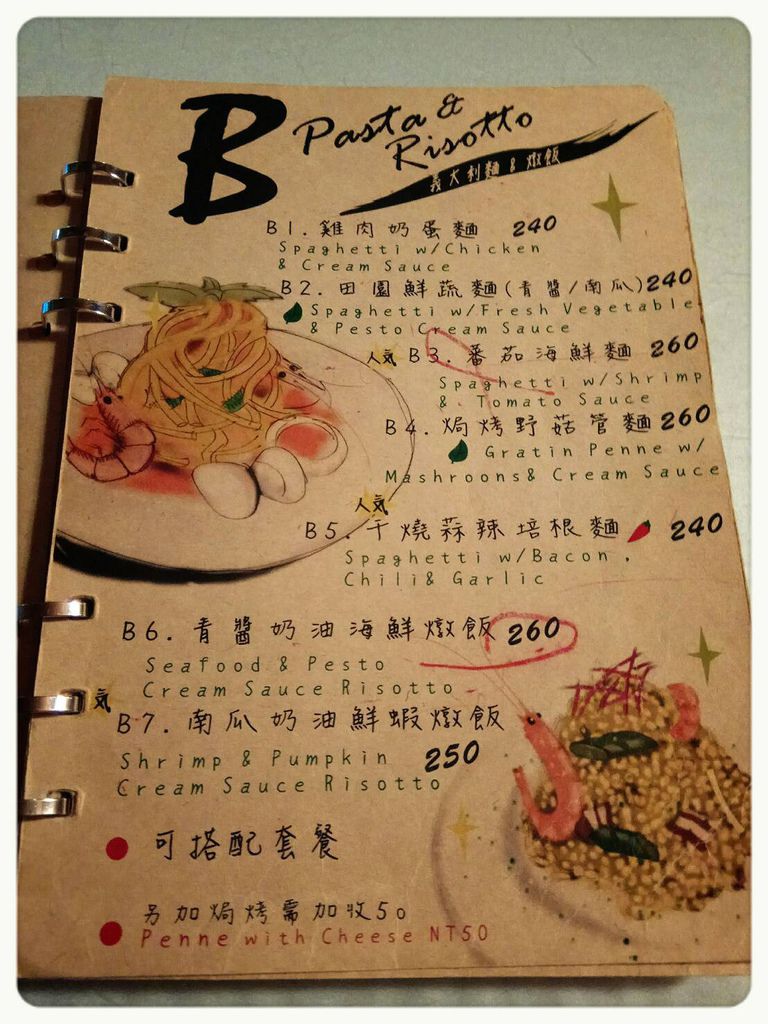 B Pasta &
Risotto
義大利麵 & 燉飯
B1. 雞肉奶蛋麵 240
Spaghetti w/Chicken
& Cream Sauce
B2. 田園鮮蔬麵(青醬/南瓜) 240
Spaghetti w/Fresh Vegetable
& Pesto Cream Sauce
人気 B3. 番茄海鮮麵 260
Spaghetti w/Shrimp
& Tomato Sauce
B4. 焗烤野菇管麵 260
Gratin Penne w/
Mashroons& Cream Sauce
人気
B5. 干燒蒜辣培根麵 240
Spaghetti w/Bacon .
Chili& Garlic
B6. 青醬奶油海鮮燉飯 260
Seafood & Pesto
Cream Sauce Risotto
気
B7. 南瓜奶油鮮蝦燉飯
Shrimp & Pumpkin 250
Cream Sauce Risotto
可搭配套餐
另加焗烤需加收50
Penne with Cheese NT50